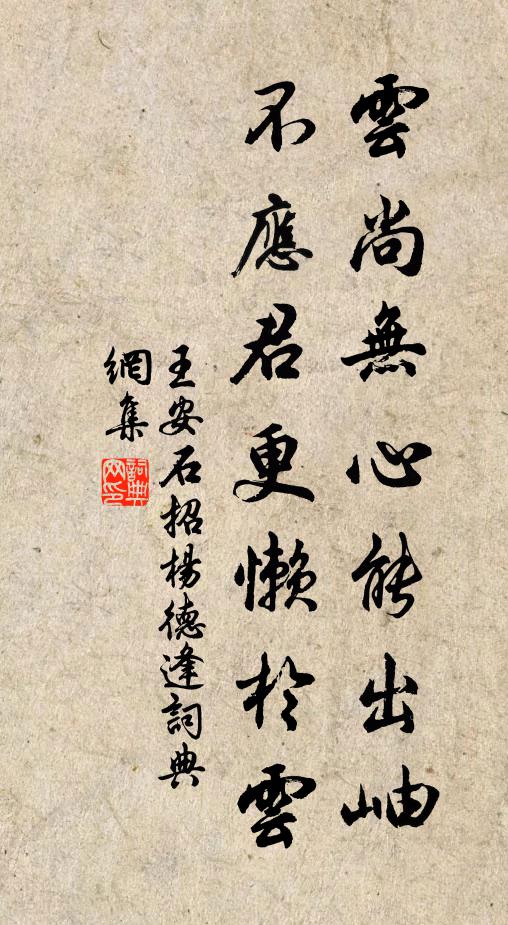 雲尚無心能出岫
不應君更懶於雲
王安石招楊德逢詞典
網集
詞典網印